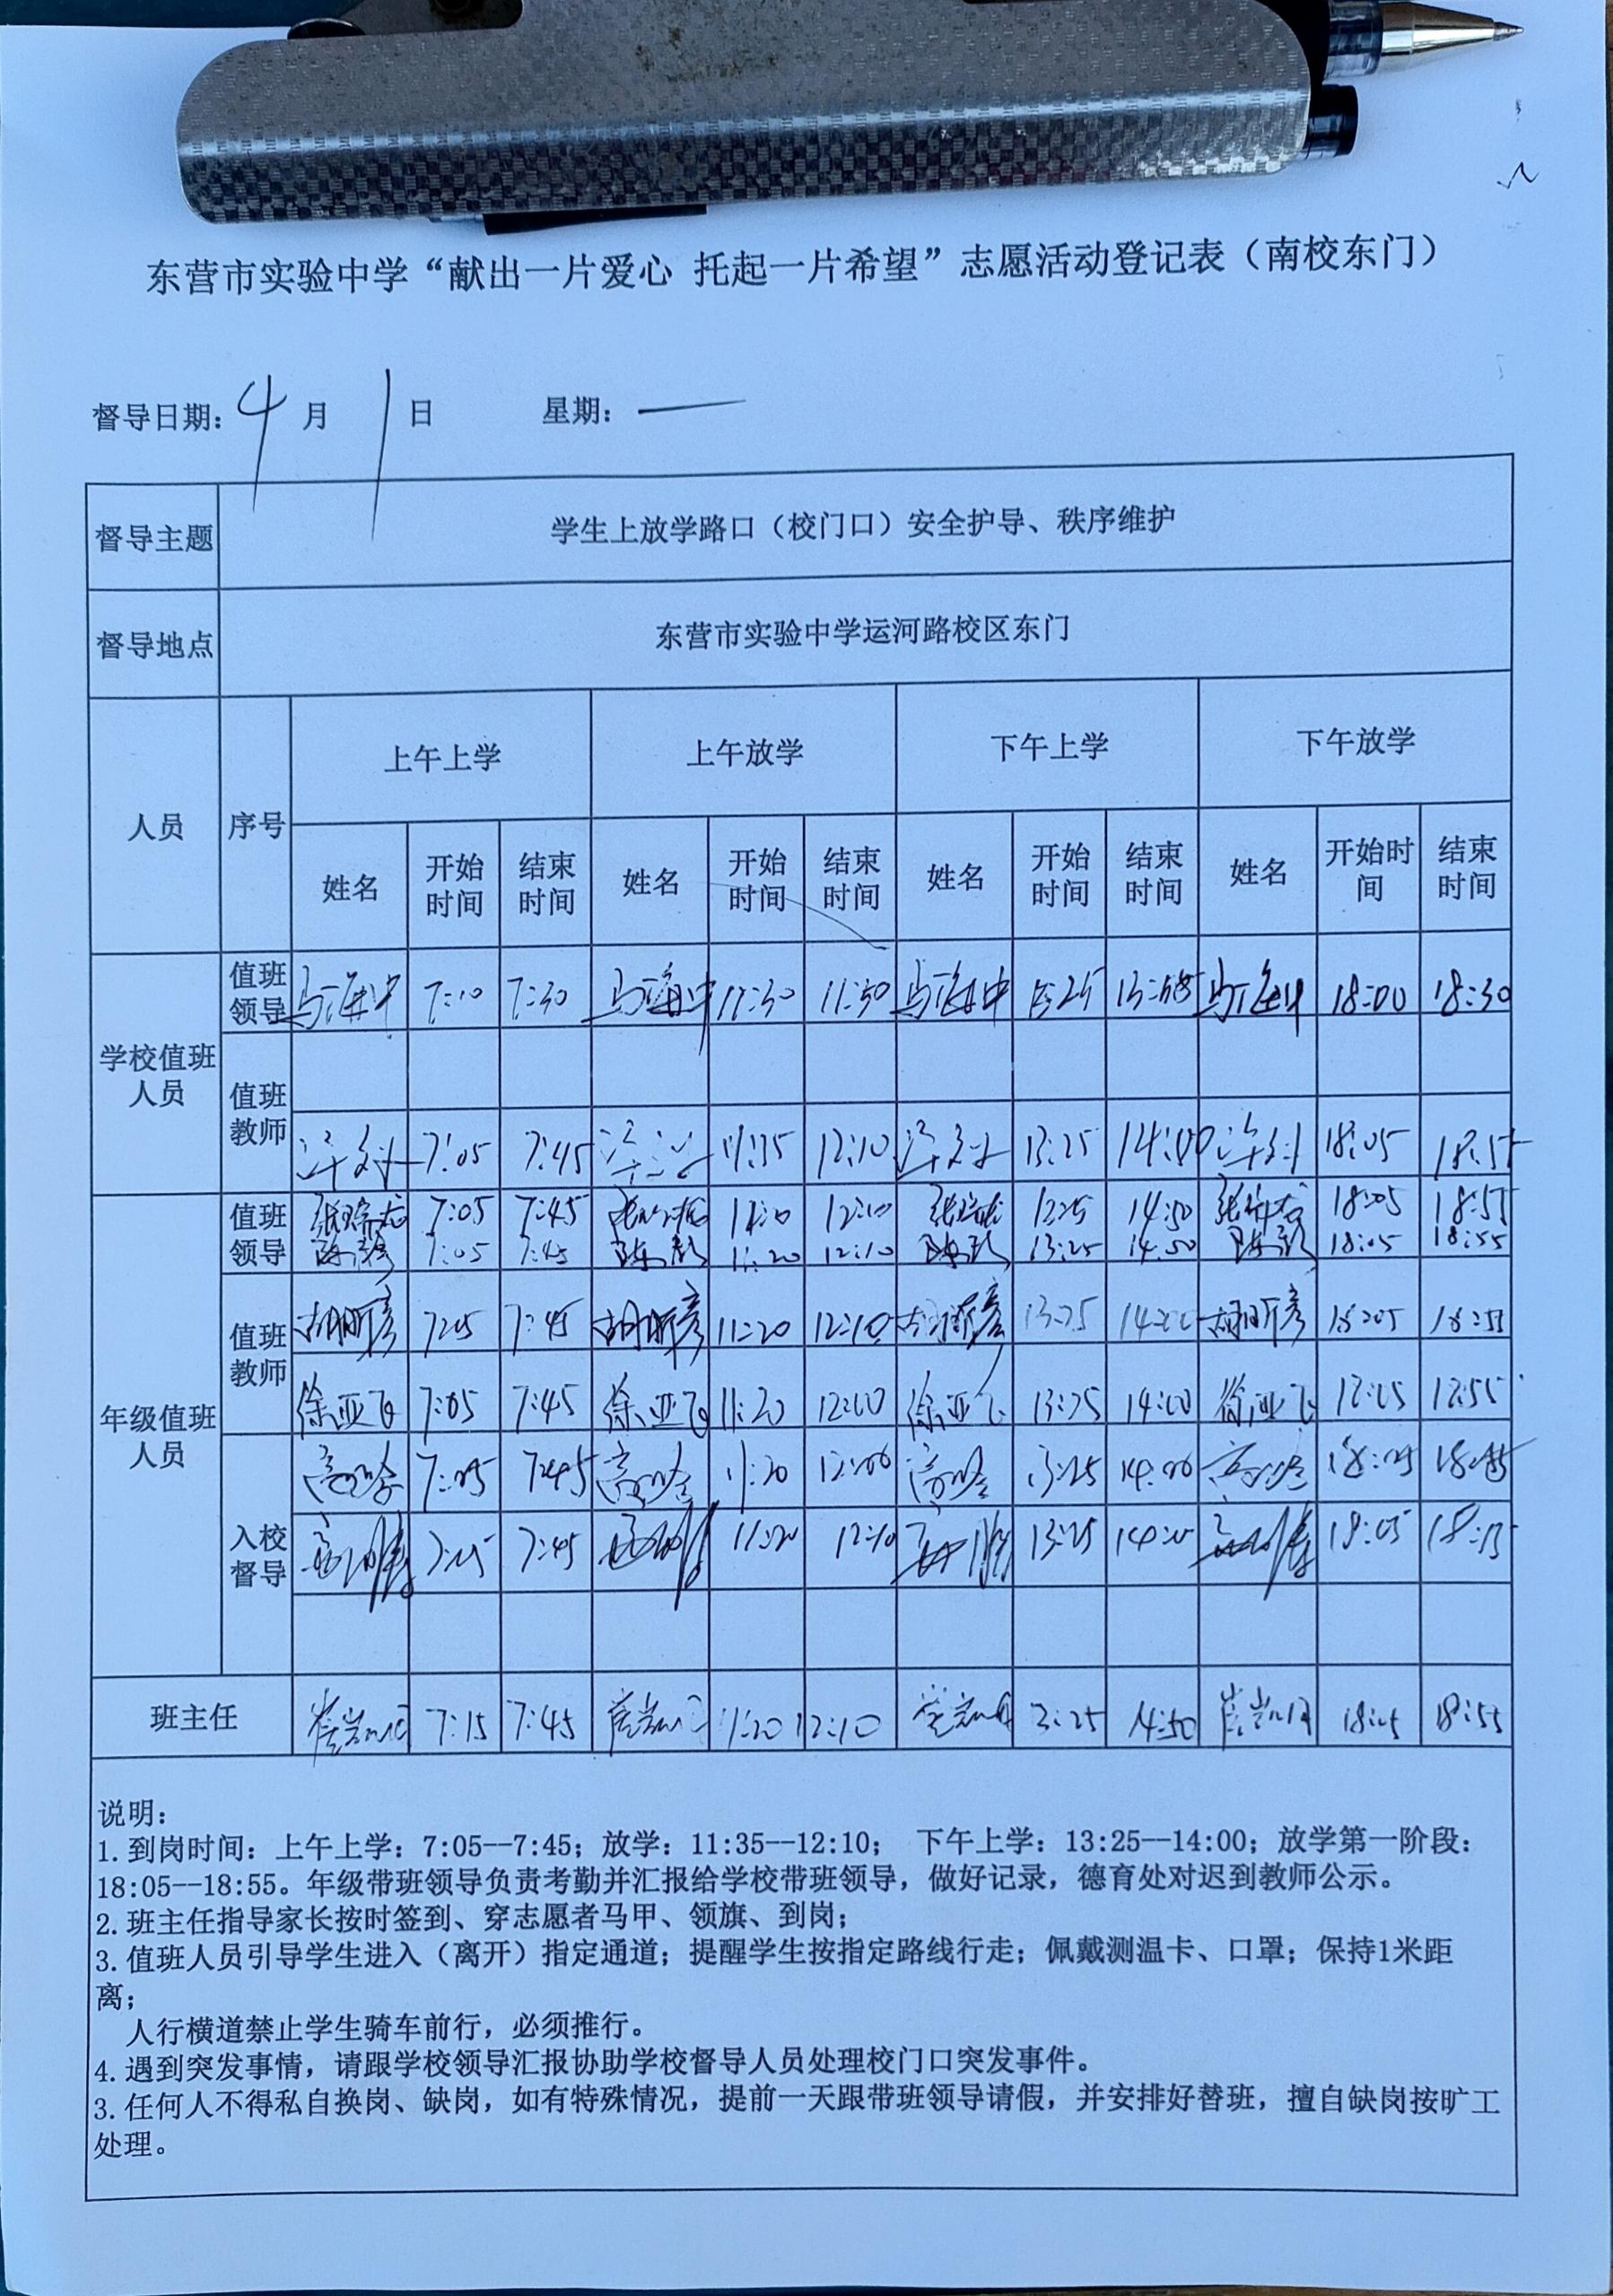 东营市实验中学“献出一片爱心 托起一片希望”志愿活动登记表（南校东门）
督导日期: 4 月 1 日 星期: 一
督导主题 学生上放学路口（校门口）安全护导、秩序维护
督导地点 东营市实验中学运河路校区东门
人员 序号 上午上学 上午放学 下午上学 下午放学
姓名 开始时间 结束时间 姓名 开始时间 结束时间 姓名 开始时间 结束时间 姓名 开始时间 结束时间
学校值班人员 值班领导 马海中 7:10 7:30 马海中 11:30 11:50 马海中 13:25 马海中 18:00 18:30
值班教师
7:05 7:45 11:35 12:10 13:25 14:00 18:05 18:55
年级值班人员 值班领导 7:05 7:45 12:10 13:25 14:50 18:05 18:55
7:05 7:45 11:20 12:10 13:25 14:50 18:05 18:55
值班教师 胡昕彦 7:05 7:45 胡昕彦 11:20 12:10 胡昕彦 13:25 14:00 胡昕彦 18:05 18:55
徐亚飞 7:05 7:45 徐亚飞 11:20 12:00 徐亚飞 13:25 14:00 徐亚飞
入校督导 7:05 7:45 11:20 12:00 13:25 14:00 18:05
7:45 11:20 12:10 13:25 18:05
班主任 7:15 7:45 11:20 12:10 13:25 14:50 18:05 18:55
说明:
1.到岗时间: 上午上学: 7:05--7:45; 放学: 11:35--12:10; 下午上学: 13:25--14:00; 放学第一阶段:
18:05--18:55。年级带班领导负责考勤并汇报给学校带班领导，做好记录，德育处对迟到教师公示。
2.班主任指导家长按时签到、穿志愿者马甲、领旗、到岗;
3.值班人员引导学生进入（离开）指定通道; 提醒学生按指定路线行走; 佩戴测温卡、口罩; 保持1米距
离;
人行横道禁止学生骑车前行，必须推行。
4.遇到突发事情，请跟学校领导汇报协助学校督导人员处理校门口突发事件。
3.任何人不得私自换岗、缺岗，如有特殊情况，提前一天跟带班领导请假，并安排好替班，擅自缺岗按旷工
处理。